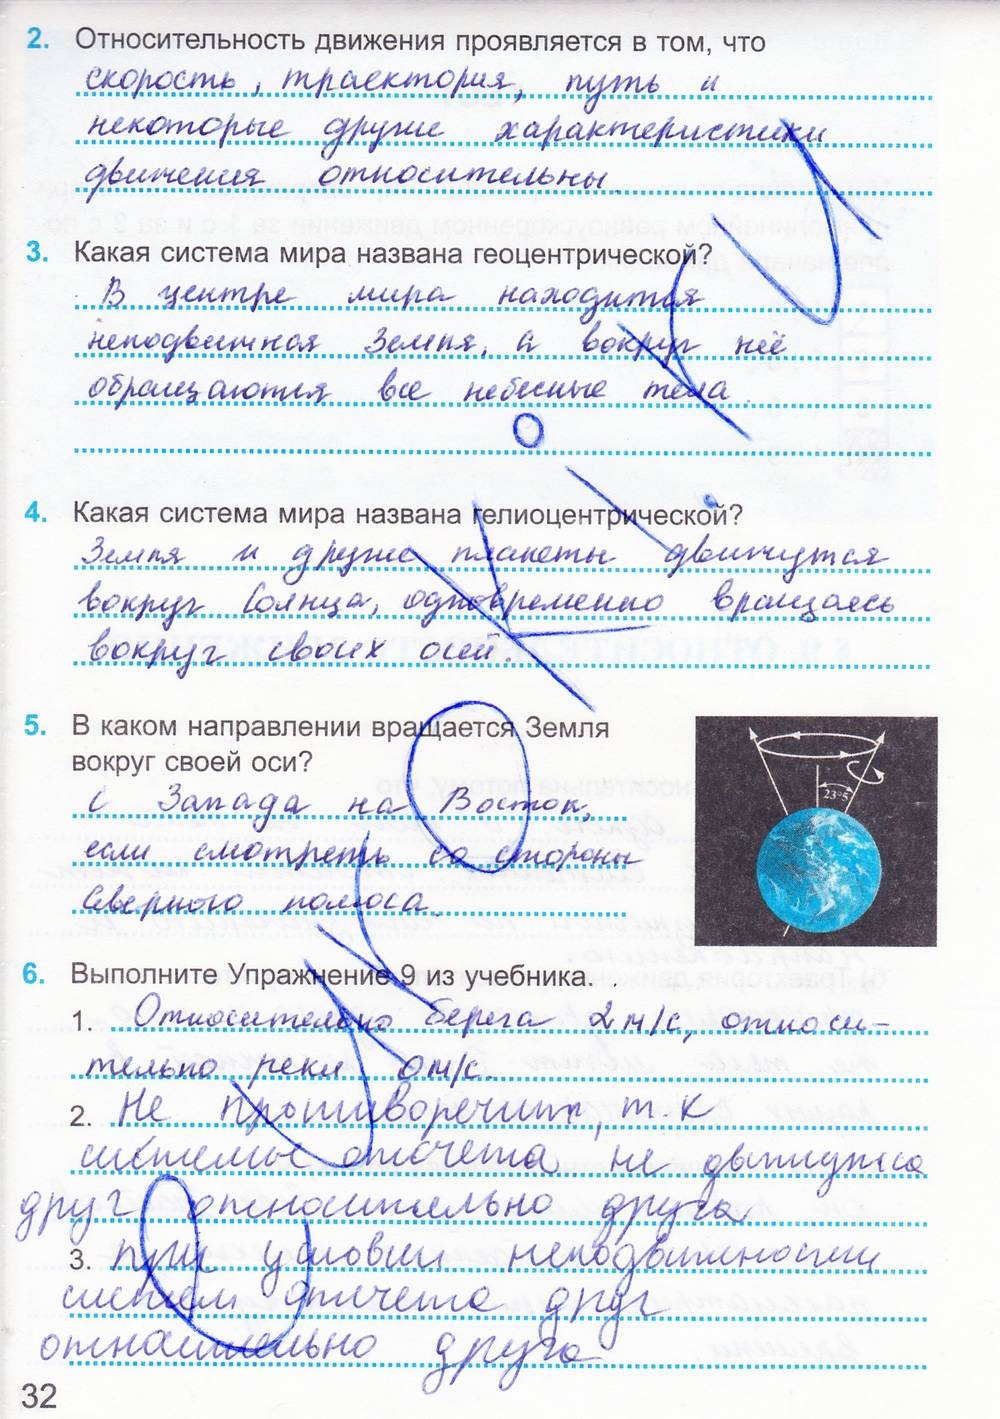 2. Относительность движения проявляется в том, что
скорость, траектория, путь и
некоторые другие характеристики
движения относительны
3. Какая система мира названа геоцентрической?
В центре мира находится
неподвижная Земля, а вокруг неё
обращаются все небесные тела.
4. Какая система мира названа гелиоцентрической?
Земля и другие планеты движутся
вокруг Солнца, одновременно вращаясь
вокруг своих осей.
5. В каком направлении вращается Земля
вокруг своей оси?
С Запада на Восток,
если смотреть со стороны
Северного полюса.
23°5
6. Выполните Упражнение 9 из учебника.
1. Относительно берега 2 м/с, относи-
тельно реки 0 м/с.
2. Не противоречит, т.к
системы отсчета не движутся
друг относительно друга.
3. при условии неподвижности
систем отсчета друг
относительно друга
32